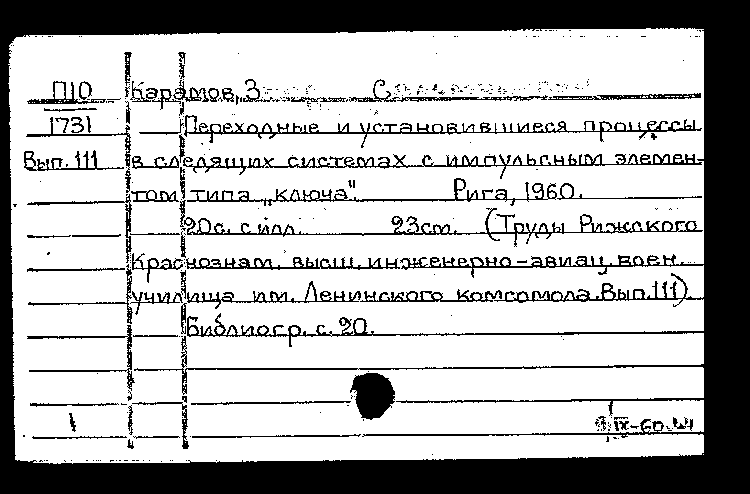 П10 Карамов, З С
1731 Переходные и установившиеся процессы
Вып. 111 в следящих системах с импульсным элемен-
том типа „ключа". Рига, 1960.
20с. с илл. 23см. (Труды Рижского
Краснознам. высш. инженерно-авиац. воен.
училища им. Ленинского комсомола. Вып. 111).
Библиогр. с. 20.
1 IX-60